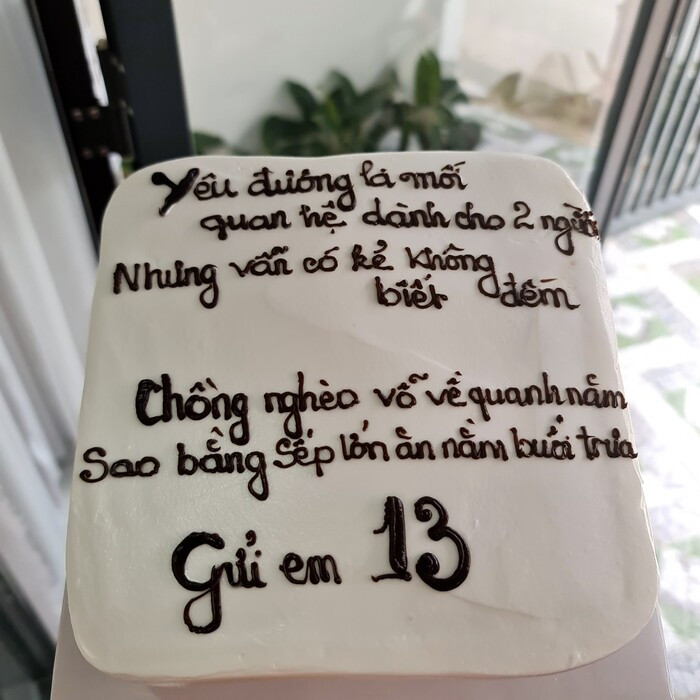 Yêu đương là mối
quan hệ dành cho 2 người
Nhưng vẫn có kẻ không
biết đếm
Chồng nghèo vỗ về quanh năm
Sao bằng Sếp lớn ăn nằm buổi trưa
Gửi em 13